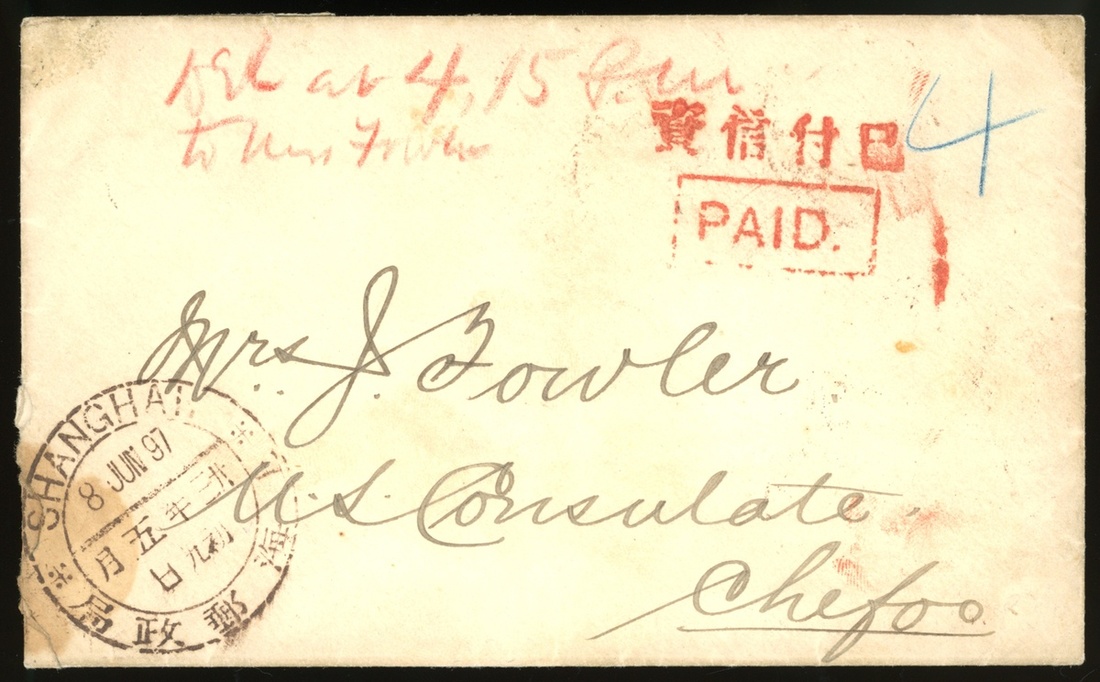 Del at 4,15 P.m
to Mrs Fowler
已付信資
4
PAID.
Mrs. J. Fowler
U.S. Consulate
Chefoo
SHANGHAI
8 JUN 97
廿三年
五月
初九日
海郵政局